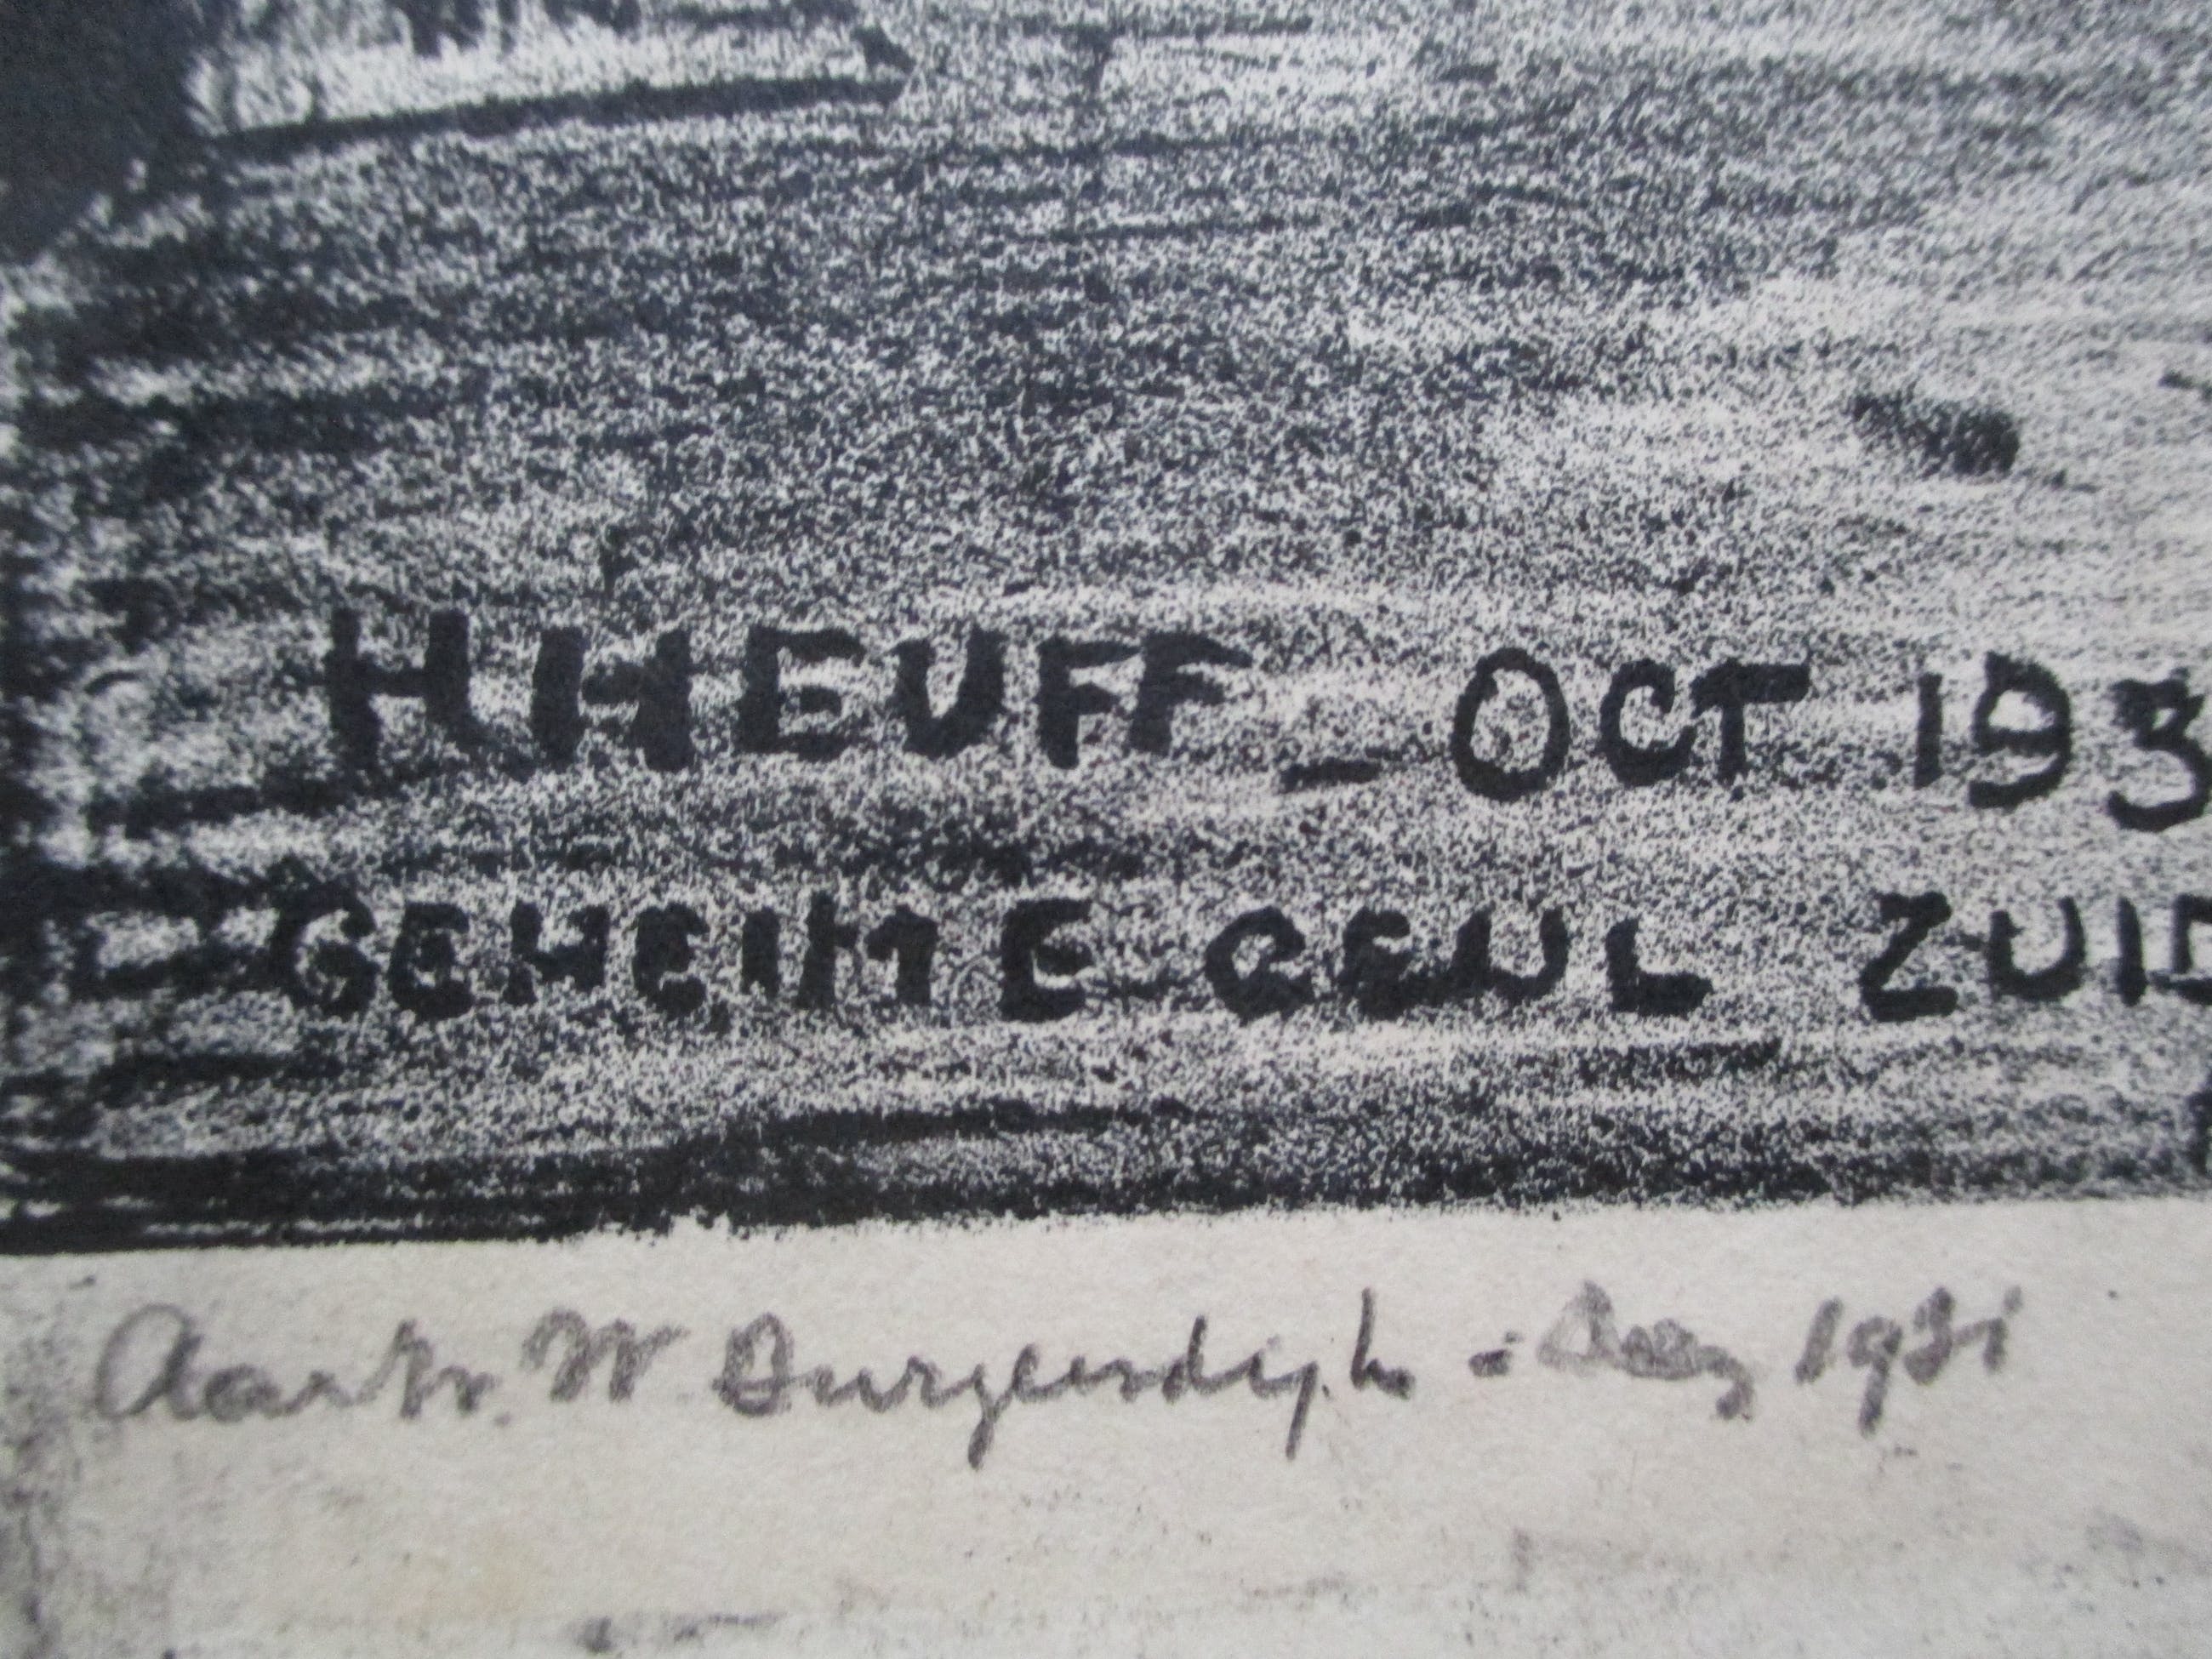 H.HEUFF _ OCT 193
GEHEIME GEUL ZUID
Aan Hr. W Burgersdijk - Dec 1931